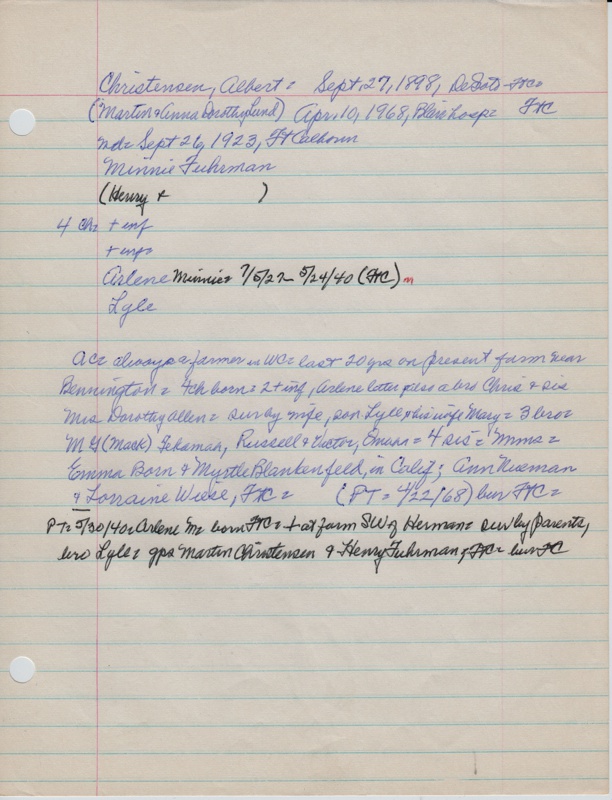 Christensen, Albert = Sept. 27, 1898, DeSoto - FtC =
(Martin & Anna Dorothy Lund) Apr. 10, 1968, Blair hosp = FtC
md = Sept 26, 1923, Ft Calhoun
Minnie Fuhrman
(Henry & )
4 Ch = + inf
+ inf =
Arlene Minnie = 7/5/27 - 5/24/40 (FtC) m
Lyle
AC = always a farmer in WC = last 20 yrs on present farm near
Bennington = 4 ch born = 2 + inf, Arlene later plus a bro Chris & sis
Mrs Dorothy Allen = sur by wife, son Lyle & his wife Mary = 3 bro =
M G (Mack) Tekamah, Russell & Victor, Omaha = 4 sis = Mmes =
Emma Born & Myrtle Blankenfeld, in Calif; Ann Nieman
& Lorraine Wiese, FtC = (PT = 4/22/68) bur FtC =
PT = 5/30/40 = Arlene M = born FtC = + at farm SW of Herman = sur by parents,
bro Lyle = gps Martin Christensen & Henry Fuhrman, FtC = bur FC